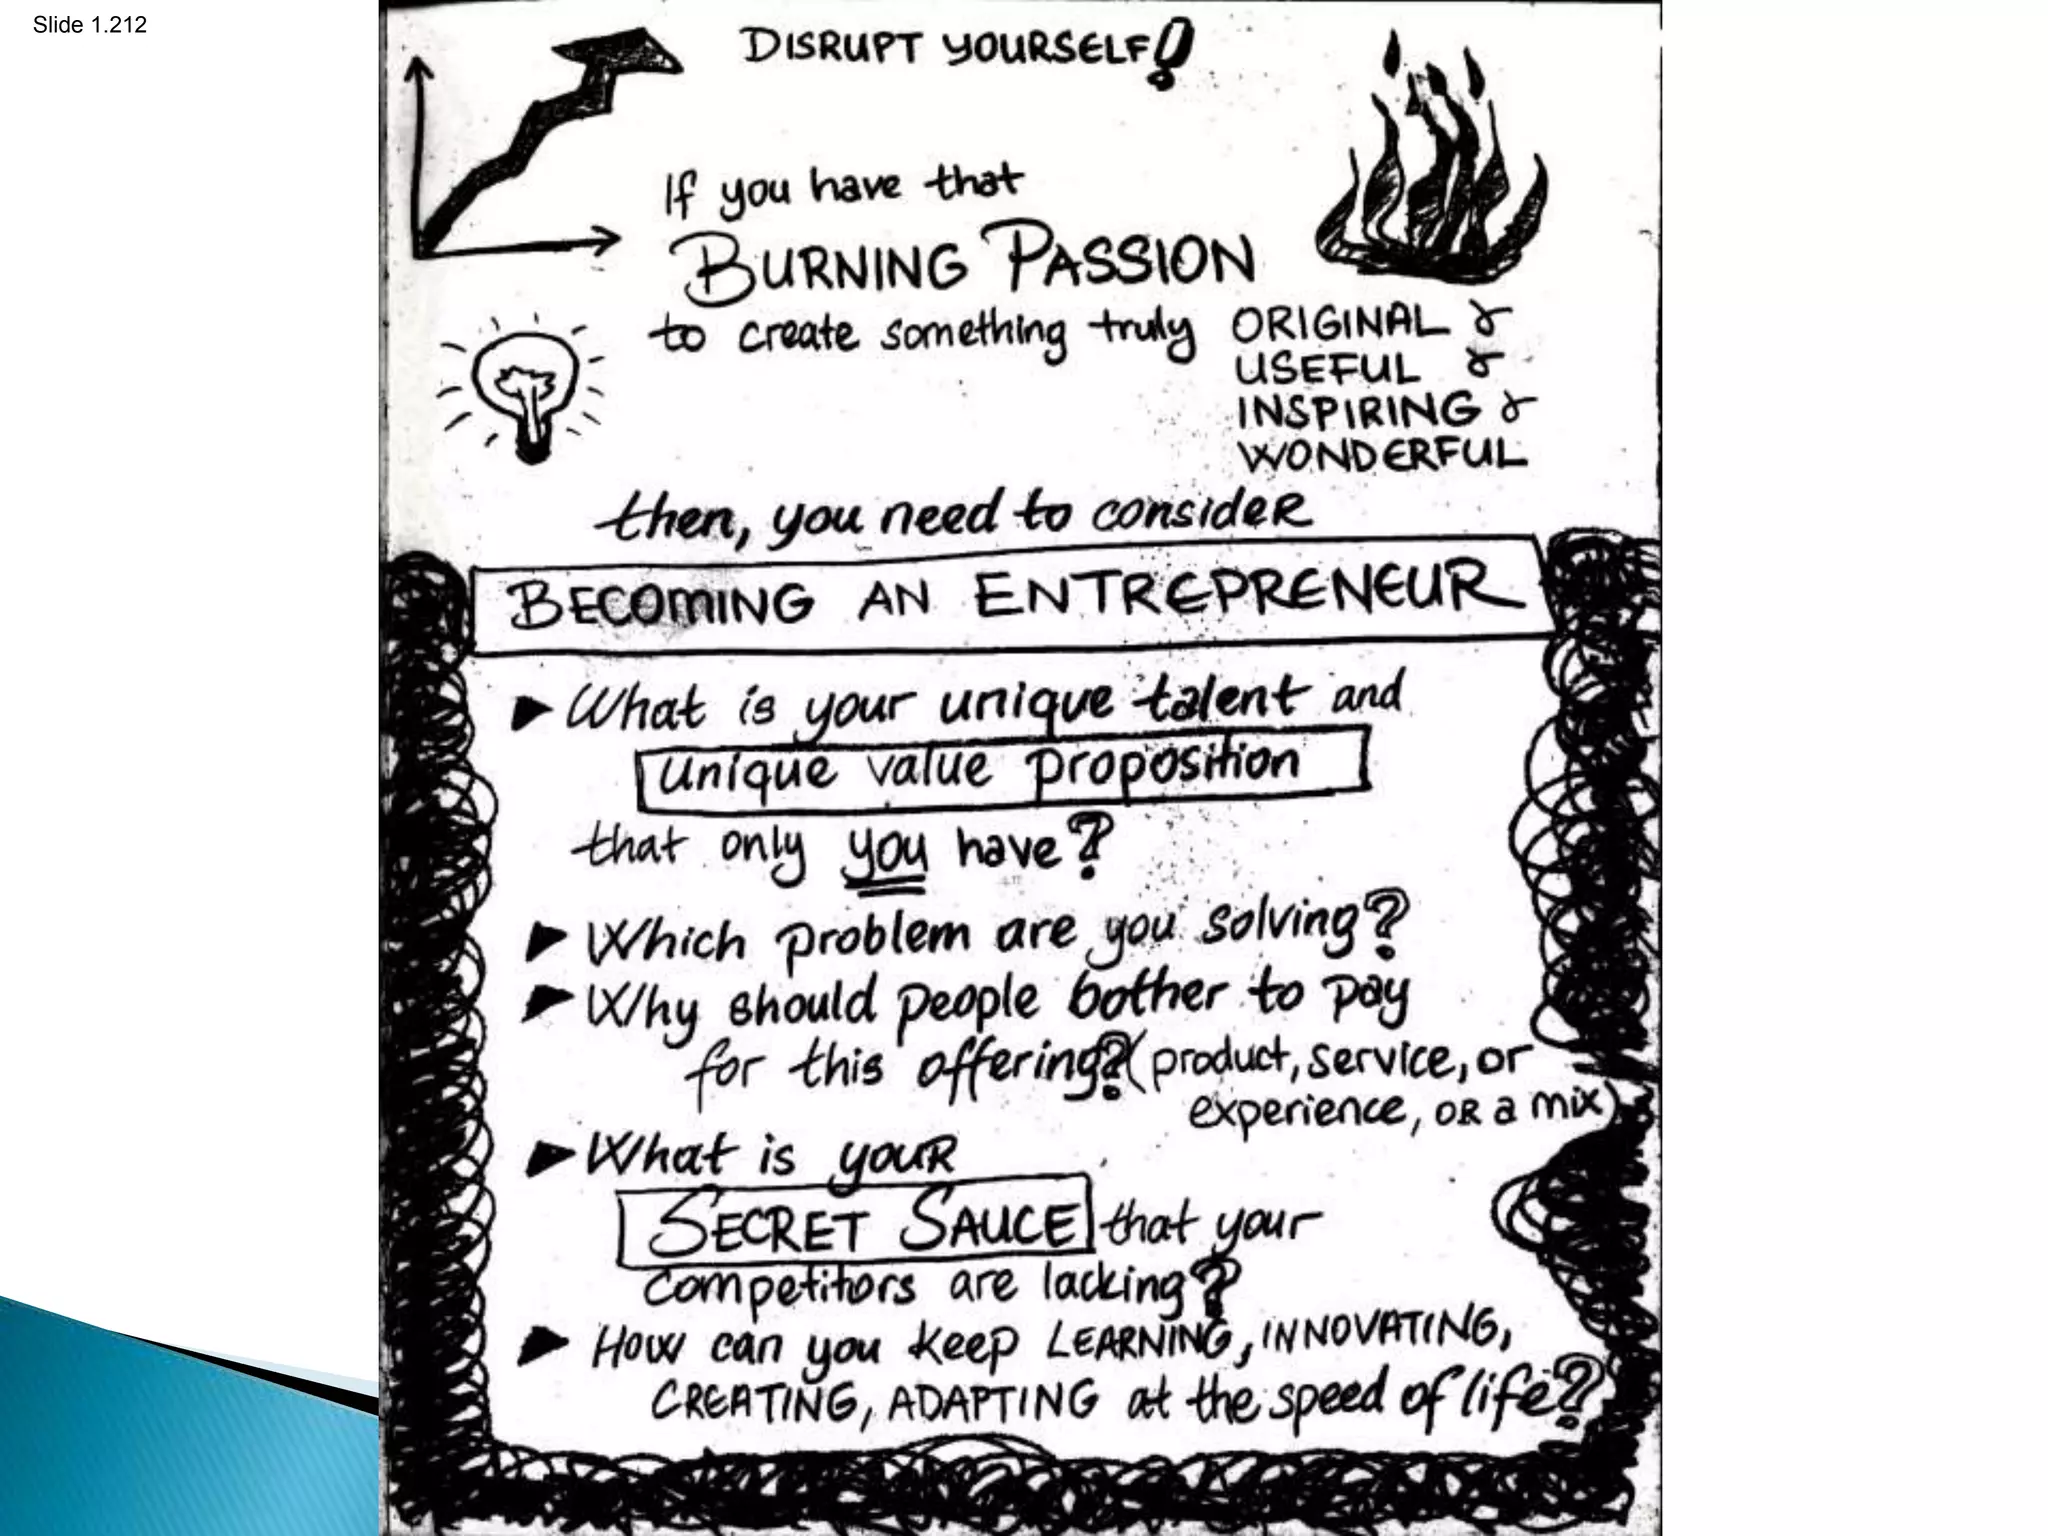 Slide 1.212
DISRUPT YOURSELF!
If you have that
BURNING PASSION
to create something truly ORIGINAL &
USEFUL &
INSPIRING &
WONDERFUL
then, you need to consider
BECOMING AN ENTREPRENEUR
► What is your unique talent and
unique value proposition
that only you have?
► Which problem are you solving?
► Why should people bother to pay
for this offering? (product, service, or
experience, OR a mix)
► What is your
SECRET SAUCE that your
competitors are lacking?
► How can you keep LEARNING, INNOVATING,
CREATING, ADAPTING at the speed of life?